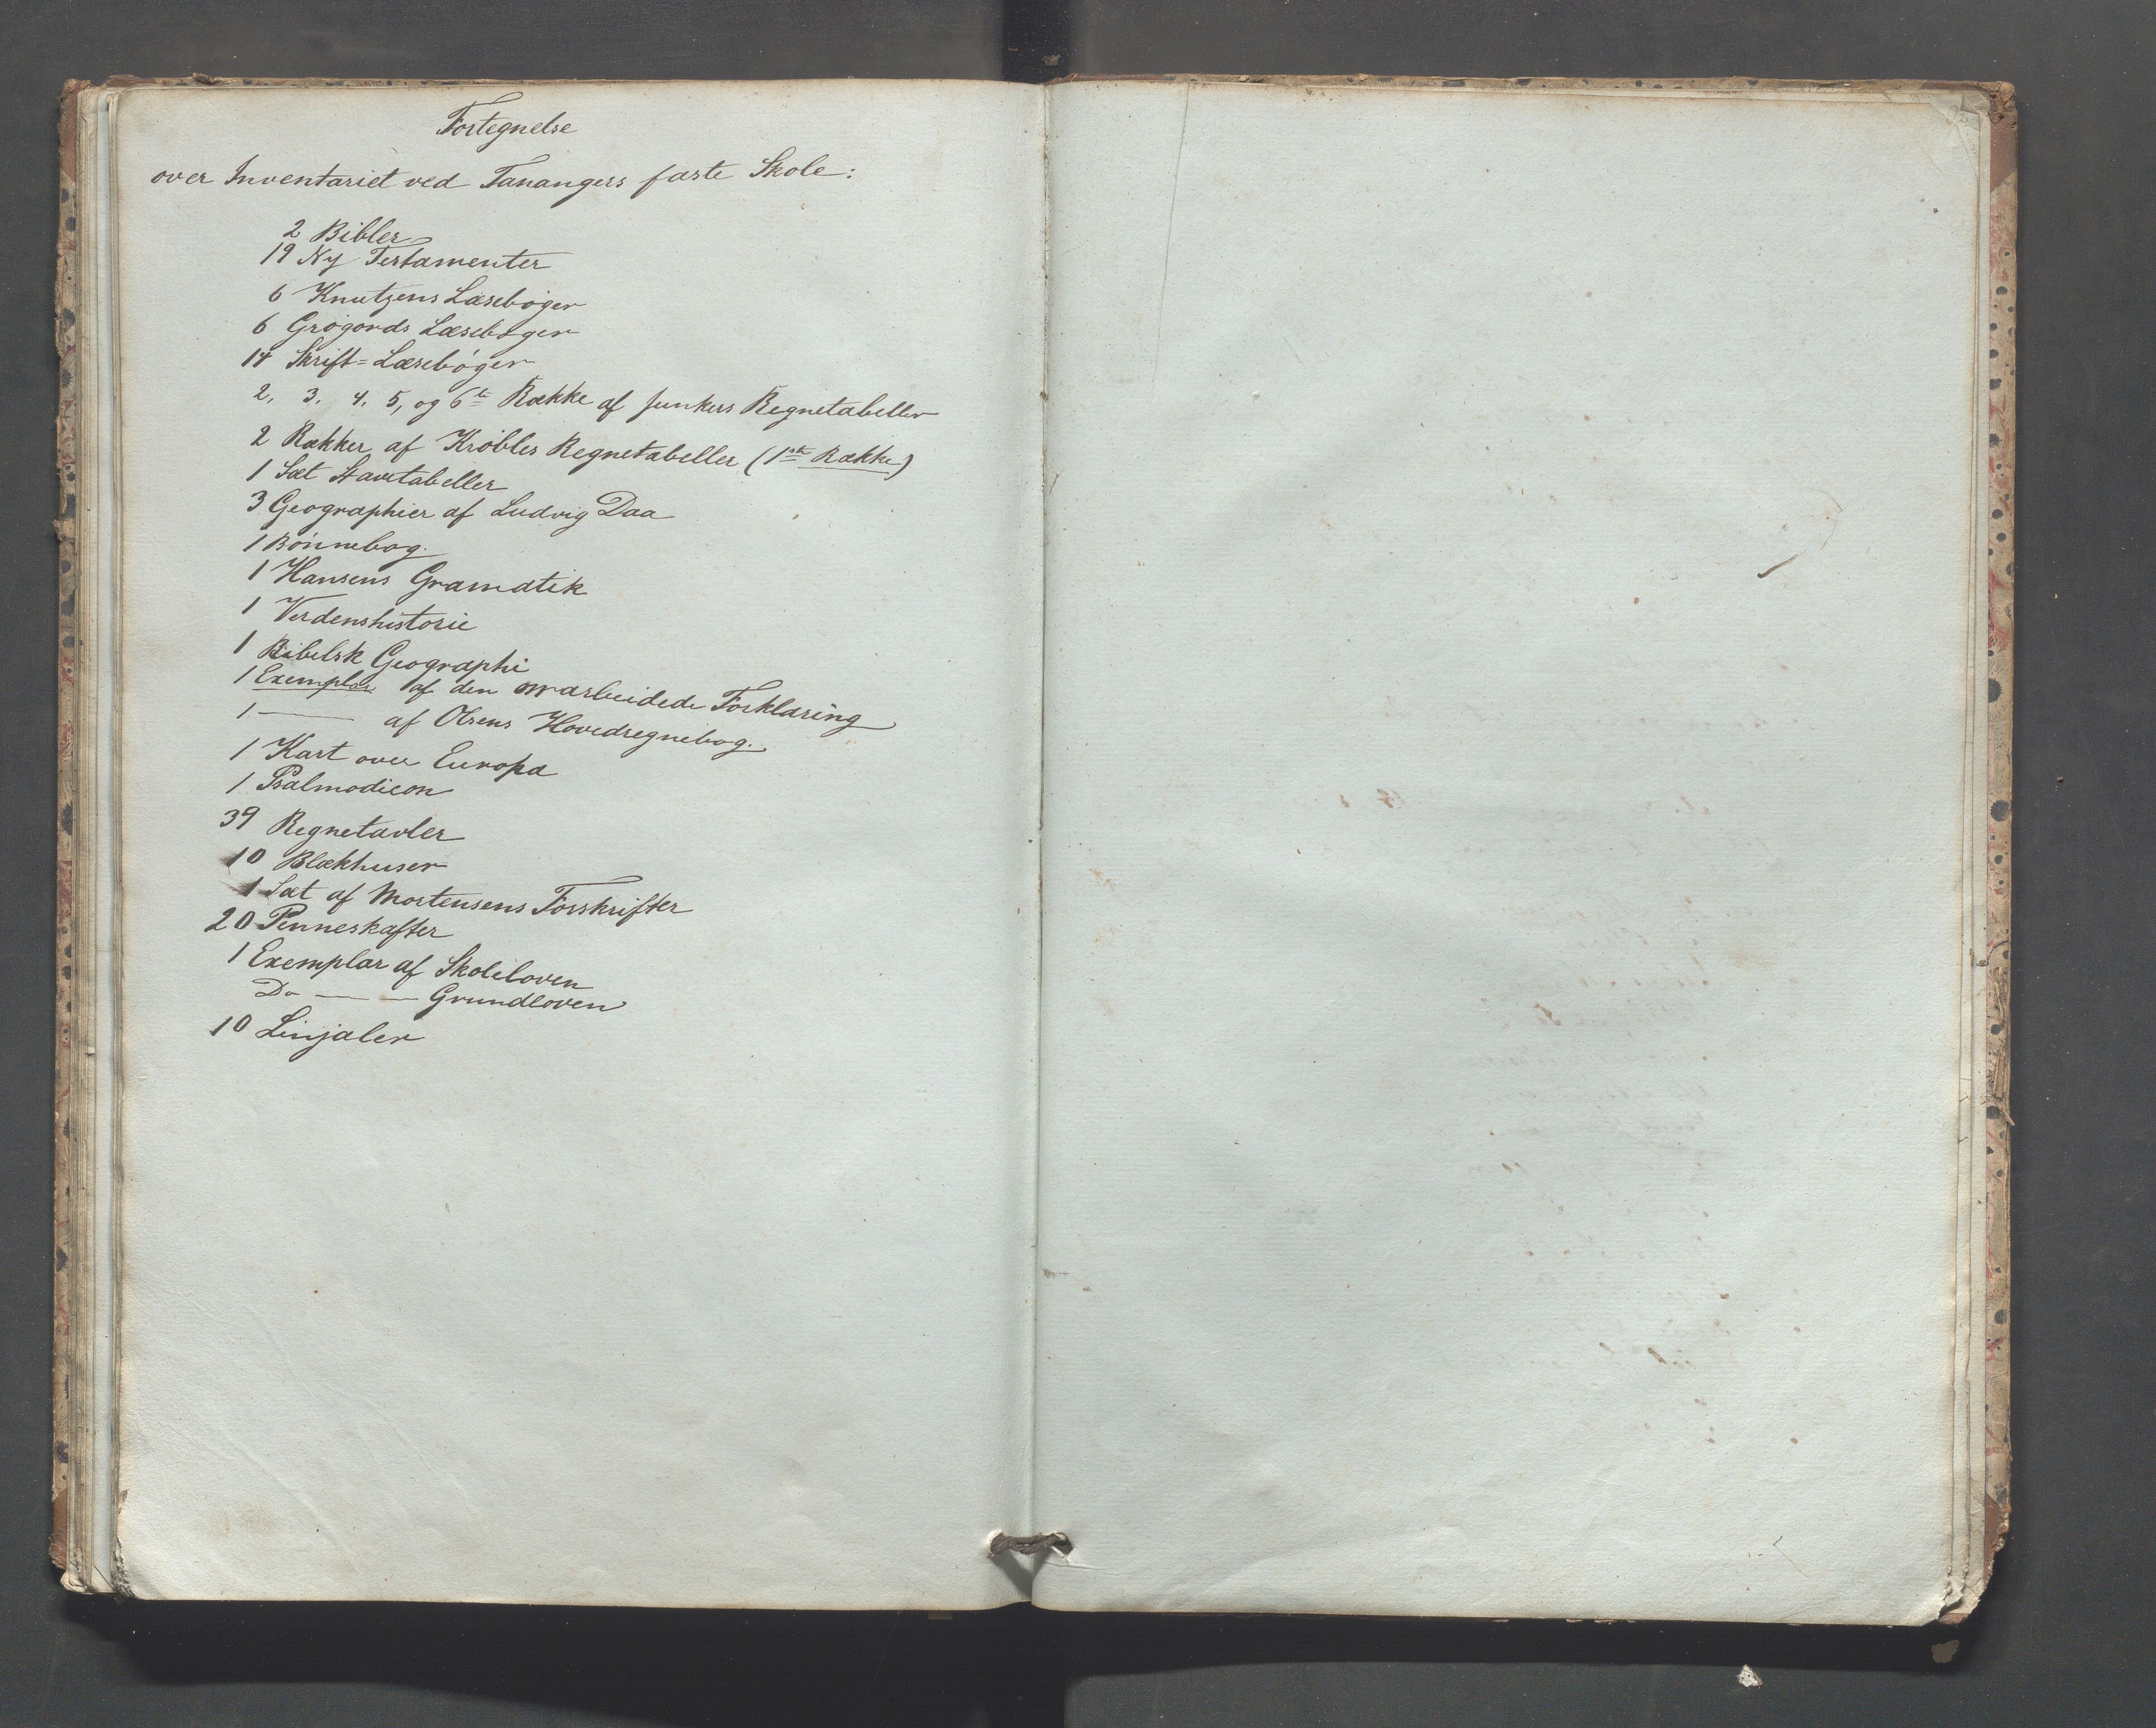 Fortegnelse
over Inventariet ved Tanangers faste Skole:
2 Bibler
19 Ny Testamenter
6 Knutzens Læsebøger
6 Grøgords Læsebøger
14 Skrift=Læsebøger
2. 3. 4. 5, og 6te Række af Junkers Regnetabeller
2 Rækker af Krøbles Regnetabeller (1ste Række)
1 Sæt Stavetabeller
3 Geographier af Ludvig Daa
1 Bønnebog.
1 Hansens Gramatik
1 Verdenshistorie
1 Bibelsk Geographi
1 Exemplar af den omarbeidede Forklaring
1 — af Olsens Hovedregnebog.
1 Kart over Europa
1 Psalmodicon
39 Regnetavler
10 Blækhuser
1 Sæt af Mortensens Forskrifter
20 Penneskafter
1 Exemplar af Skoleloven
Do — — Grundloven
10 Linjaler